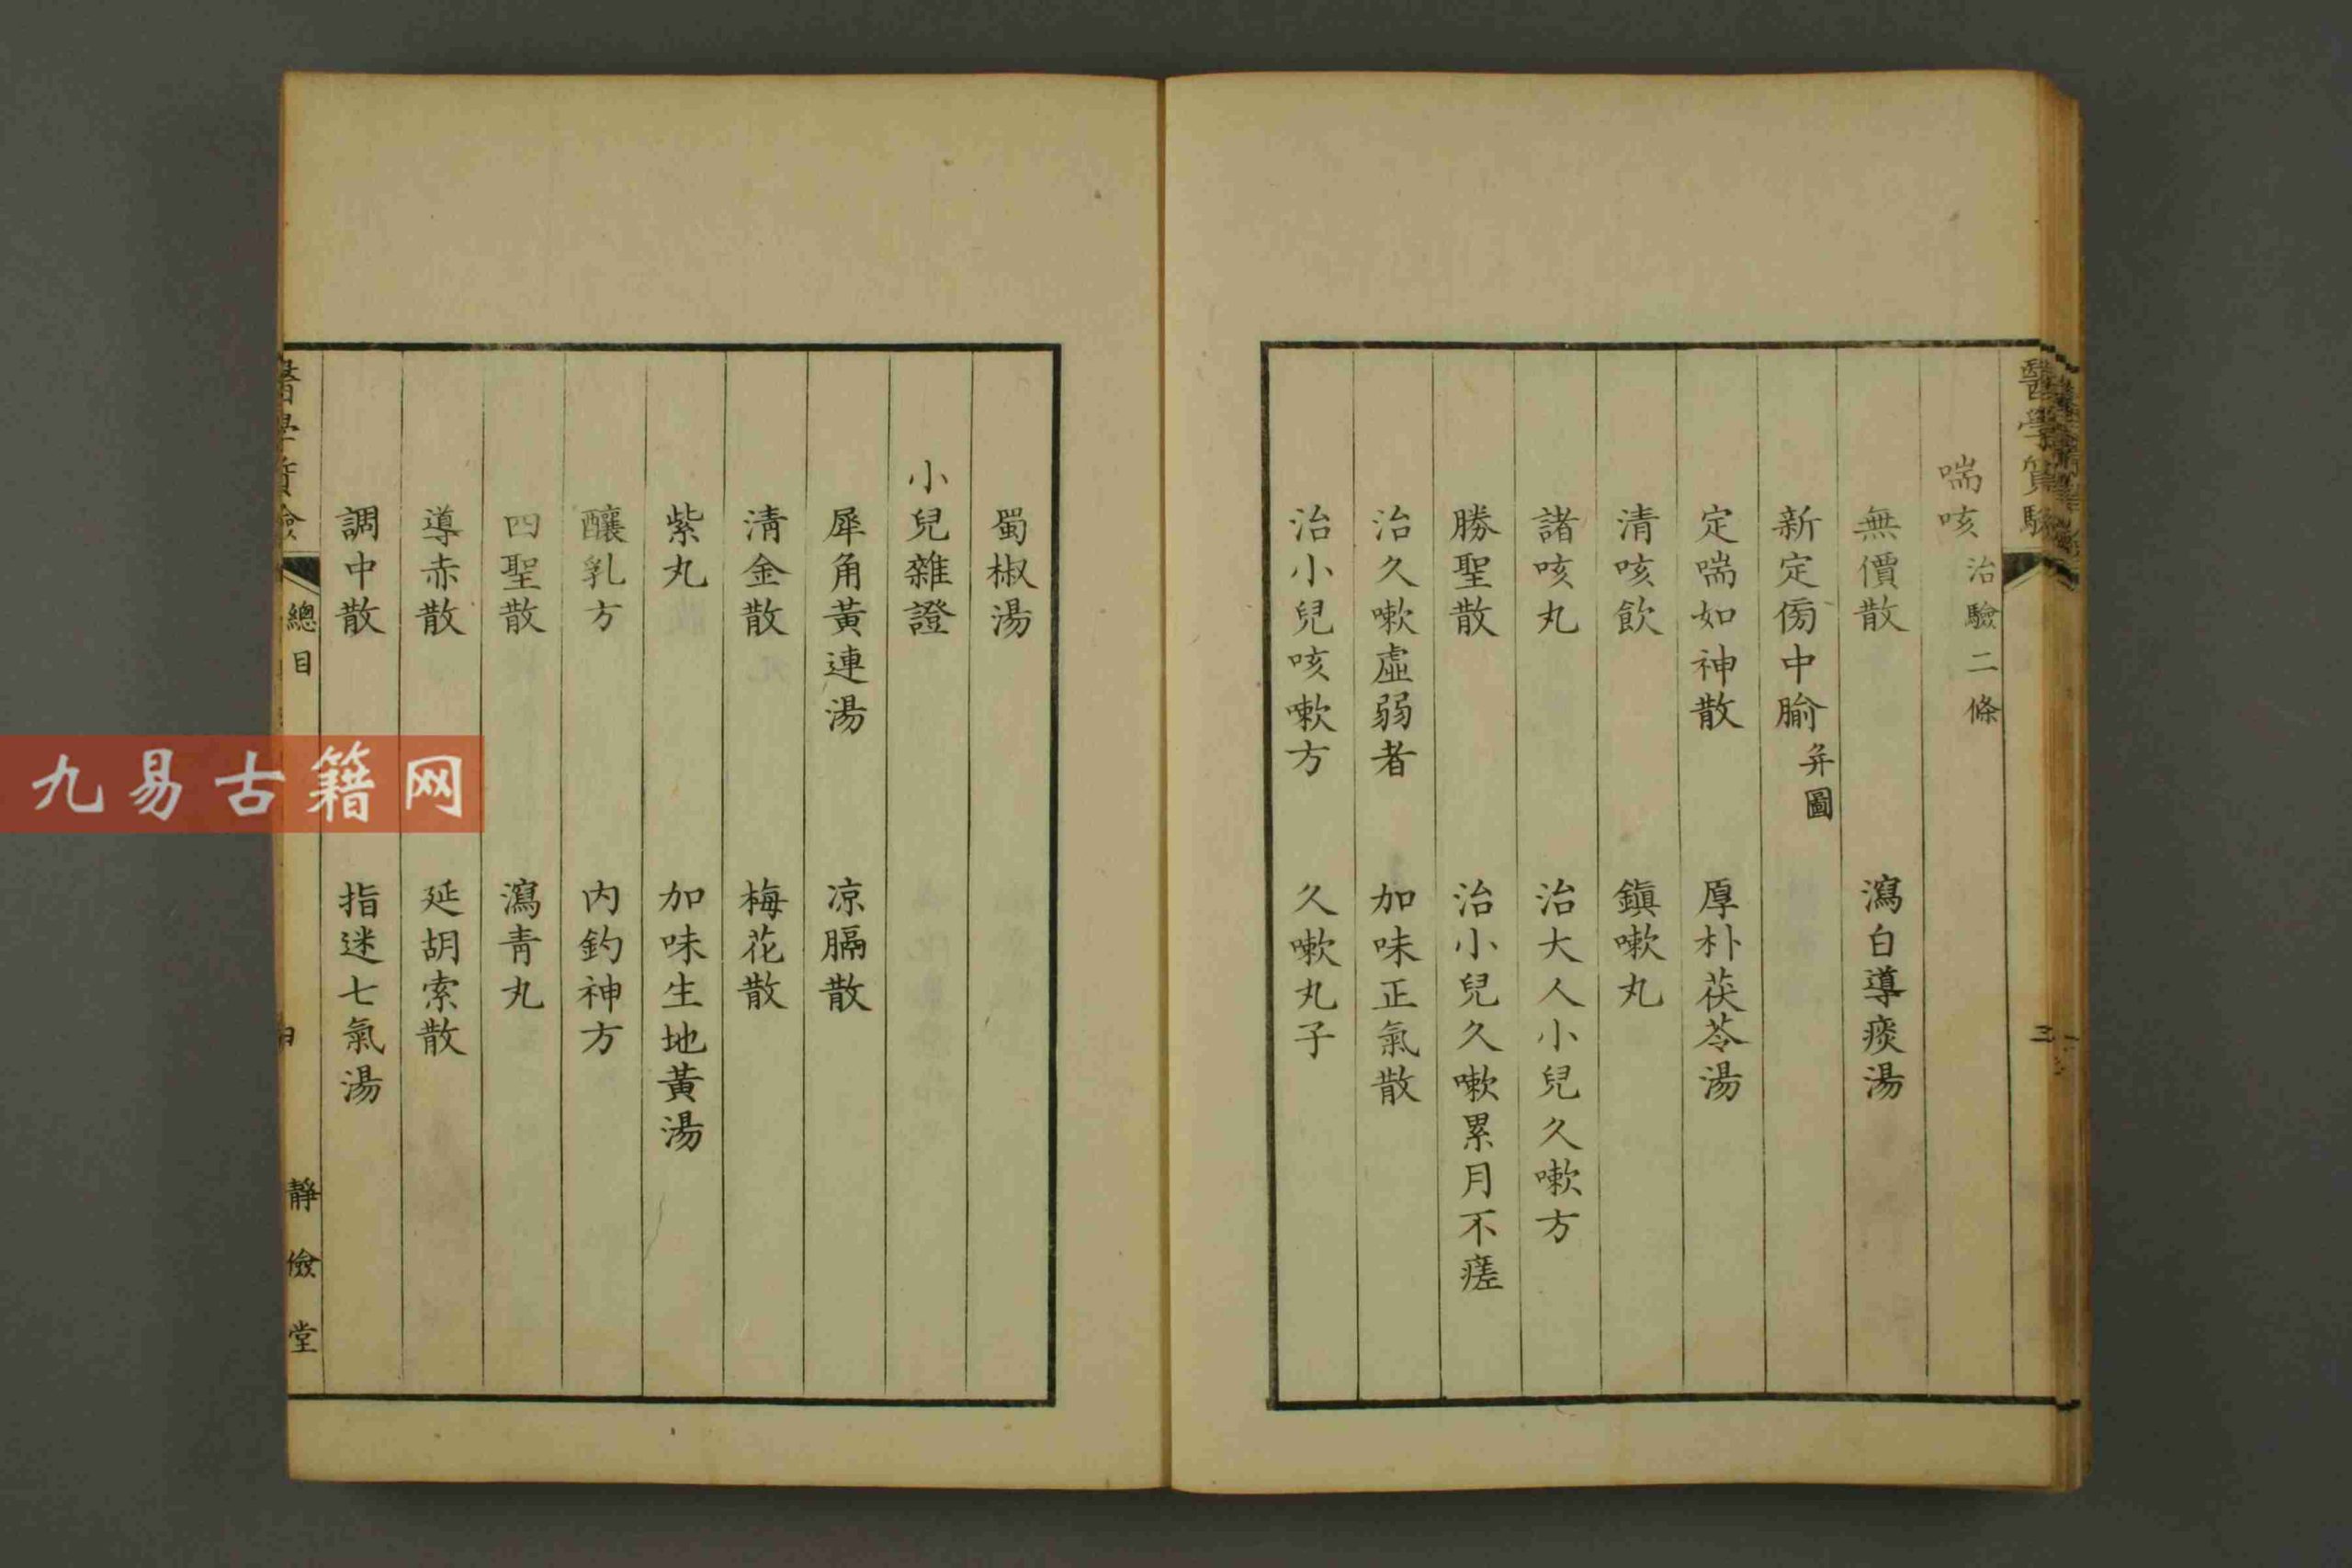 醫學質驗
三
喘咳 治驗二條
無價散 瀉白導痰湯
新定傍中腧 弁圖
定喘如神散 厚朴茯苓湯
清咳飲 鎮嗽丸
諸咳丸 治大人小兒久嗽方
勝聖散 治小兒久嗽累月不瘥
治久嗽虛弱者 加味正氣散
治小兒咳嗽方 久嗽丸子
蜀椒湯
小兒雜證
犀角黃連湯 凉膈散
清金散 梅花散
紫丸 加味生地黃湯
釀乳方 内釣神方
四聖散 瀉青丸
導赤散 延胡索散
調中散 指迷七氣湯
總目
靜儉堂
九易古籍网